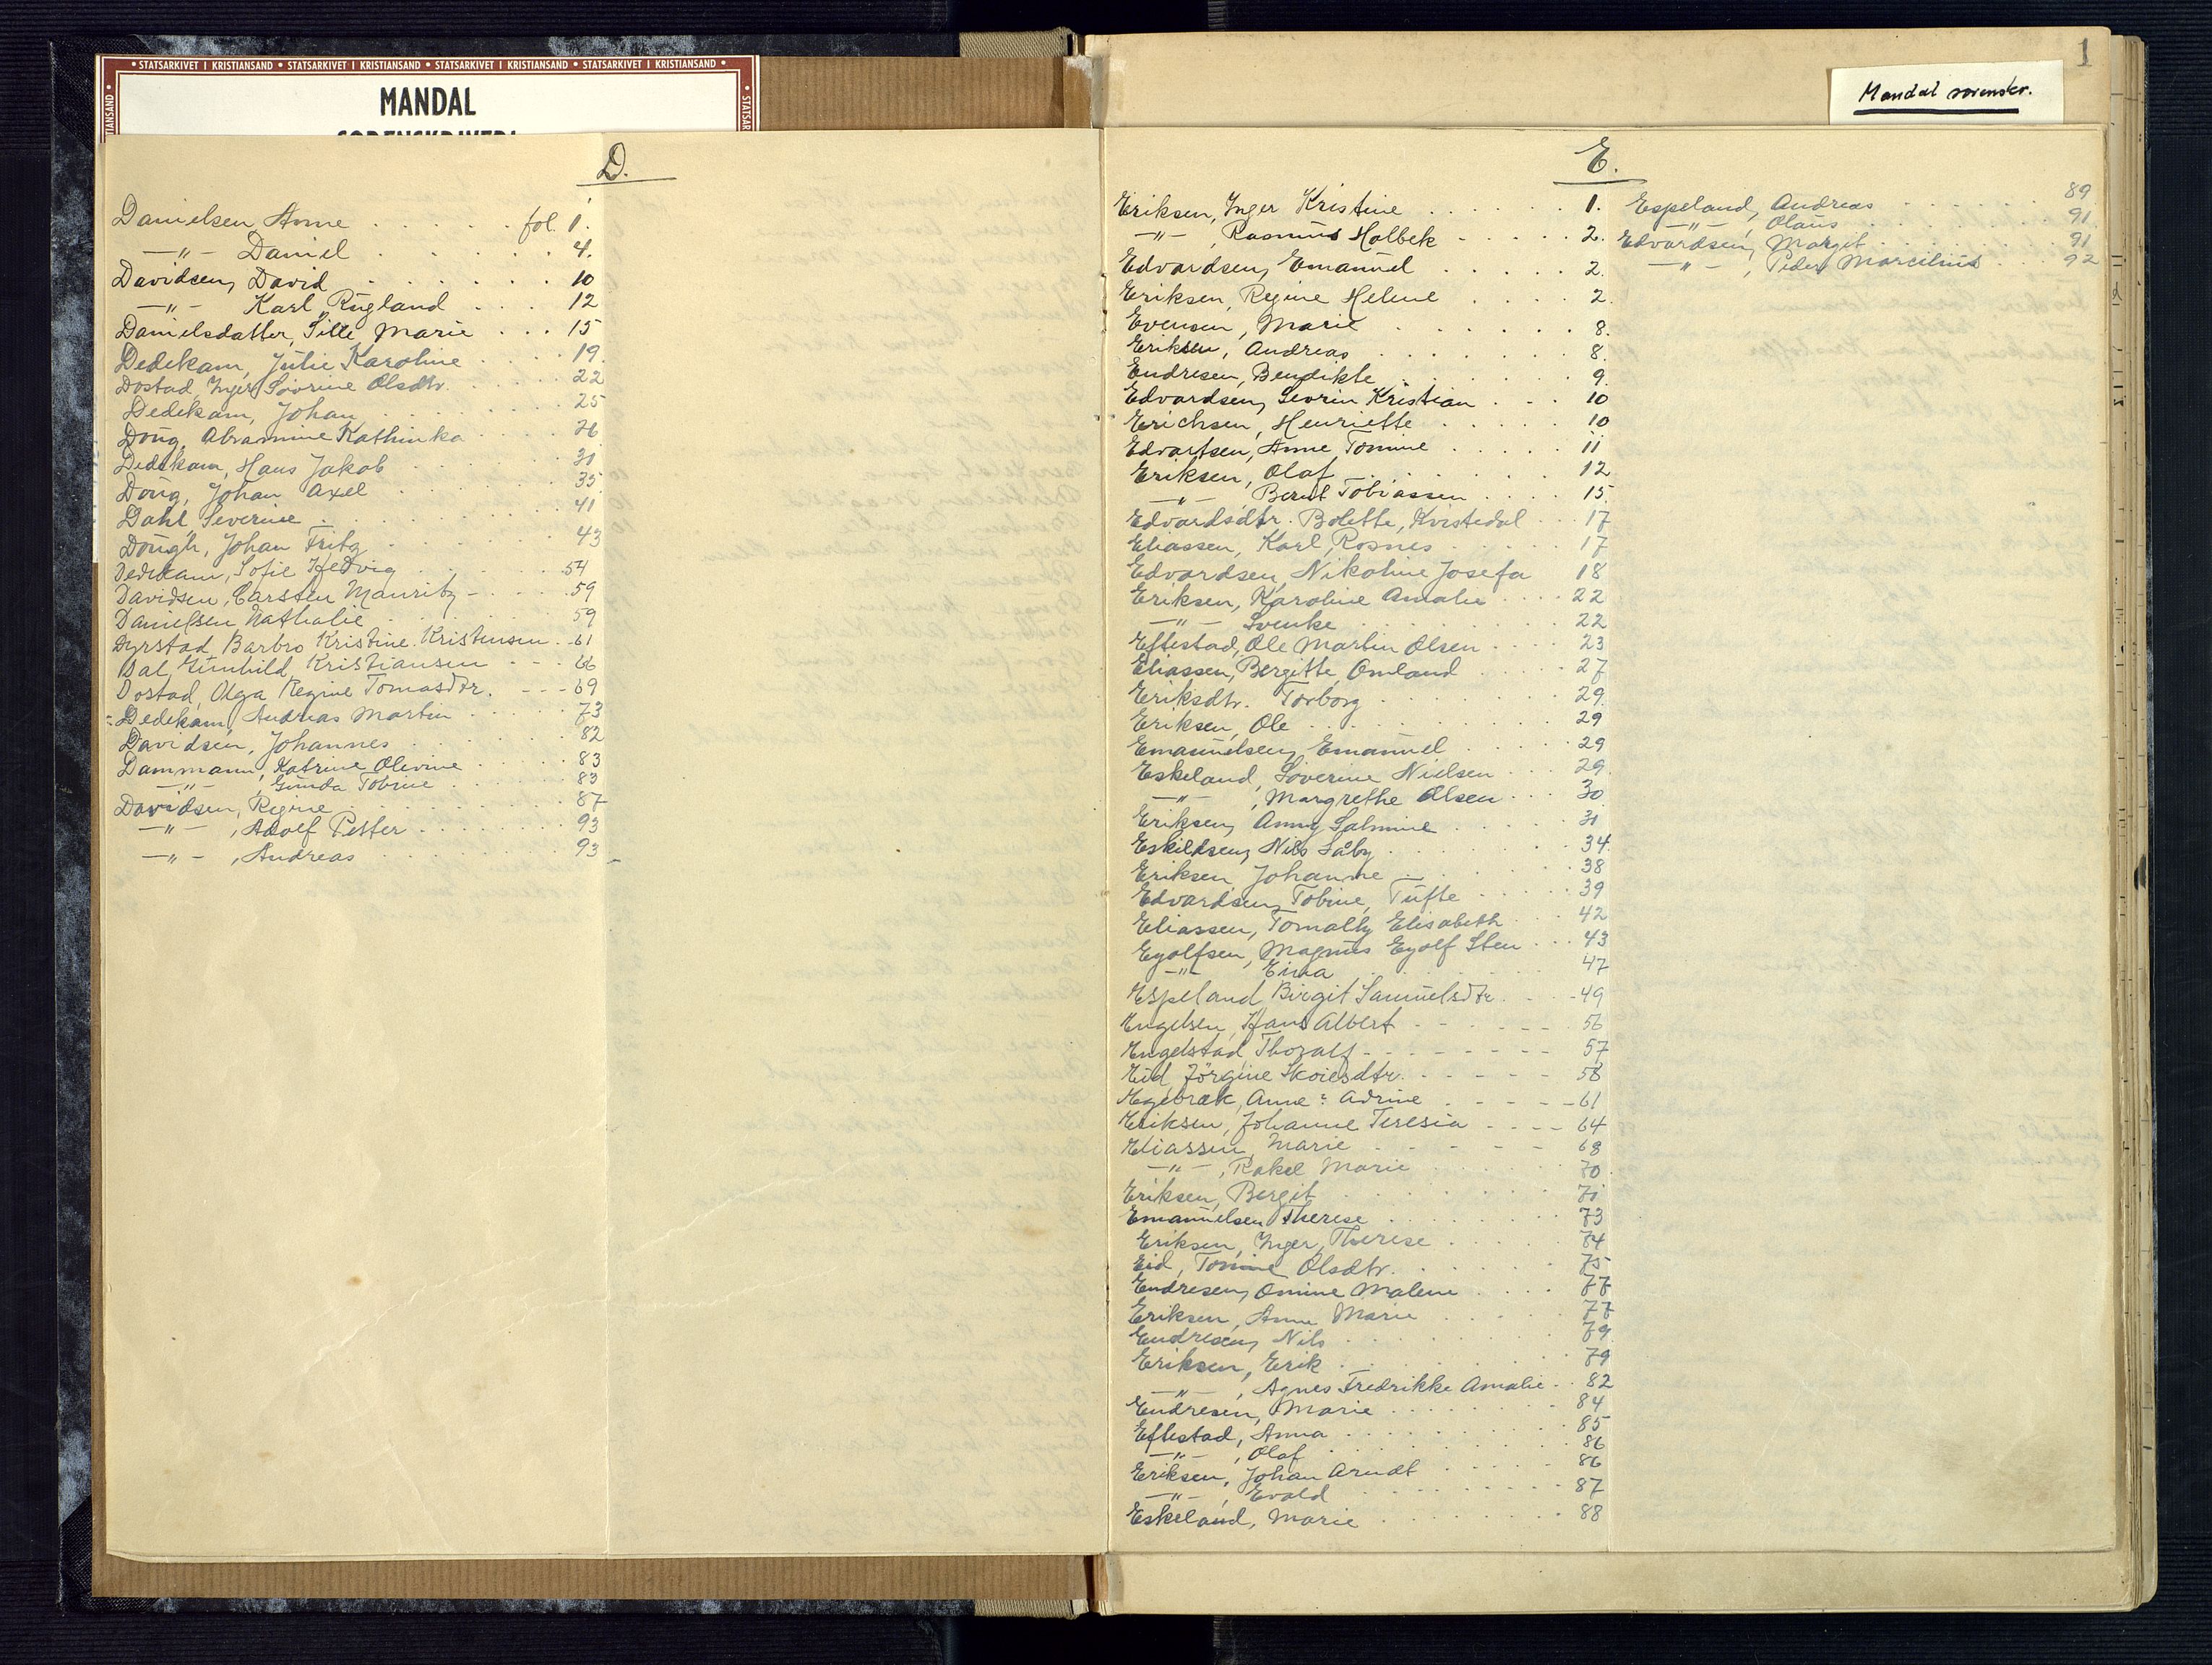 • STATSARKIVET I KRISTIANSAND • STATSARKIVET I KRISTIANSAND • STATSARKIVET I KRISTIANSAND • STATSARKIVET I KRISTIANSAND •
MANDAL
D.
Danielsen, Anne fol. 1.
—"— Daniel 4.
Davidsen, David 10
—"— Karl, Rugland 12
Danielsdatter, Sille Marie 15
Dedekam, Julie Karoline 19.
Dostad, Inger Sovrine Olsdtr. 22
Dedekam, Johan 25
Doug, Abramine Kathinka 26
Dedekam, Hans Jakob 30
Doug, Johan Axel 35
Dahl, Severine 41
Dough, Johan Fritz 43
Dedekam, Sofie Hedvig 54
Davidsen, Carsten Mauritz 59
Danielsen Nathalie 59
Dyrstad, Barbro Kristine Kristensen 61
Dal, Gunhild Kristiansen 66
Dostad, Olga Regine Tomasdtr. 69
Dedekam, Andreas Martin 73
Davidsen, Johannes 82
Dammann, Katrine Olivine 83
—"— , Gunda Tobine 83
Davidsen, Regine 87
—"— , Adolf Petter 93
—"— , Andreas 93
1
Mandal sorenskr.
E.
Eriksen, Inger Kristine 1.
—"— , Rasmus Holbek 2.
Edvardsen, Emanuel 2.
Eriksen, Regine Helene 2.
Evensen, Marie 8.
Eriksen, Andreas 8.
Endresen, Bendikte 9.
Edvardsen, Sevrin Kristian 10
Erichsen, Henriette 10
Edvartsen, Anne Tomine 11
Eriksen, Olaf 12
—"— Bernt Tobiassen 15.
Edvardsdtr. Bolette, Kvistedal 17
Eliassen, Karl, Rosnes 17
Edvardsen, Nikoline Josefa 18
Eriksen, Karoline Amalie 22
—"— Svenke 22
Eftestad, Ole Martin Olsen 23
Eliassen, Bergitte, Omland 27
Eriksdtr. Torborg 29.
Eriksen, Ole 29
Emanuelsen, Emanuel 29
Eskeland, Soverine Nielsen 29.
—"— , Margrethe Olsen 30
Eriksen, Anny Salmine 31
Eskildsen, Nils Låby 34.
Eriksen, Johanne 38
Edvardsen, Tobine, Tufte 39
Eliassen, Tomally Elisabeth 42
Eyolfsen, Magnus Eyolf Sten 43
—"— Eina 47
Espeland Birgit Samuelsdtr. 49
Engelsen, Hans Albert 56
Engelstad, Thoralf 57
Eid, Jörgine Skoiesdtr. 58
Egebræk, Anne Adrine 61
Eriksen, Johanne Teresia 64
Eliassen, Marie 68
—"— , Rakel Marie 70
Eriksen, Bergit 71
Emanuelsen Therese 73
Eriksen, Inger Therese 74
Eid, Tomine Olsdtr. 75
Endresen, Omine Malene 77
Eriksen, Anne Marie 77
Endresen, Nils 79
Eriksen, Erik 79
—"— , Agnes Fredrikke Amalie 82
Endresen, Marie 84
Eftestad, Anna 85
—"— , Olaf 86
Eriksen, Johan Arndt 86
—"— , Evald 87
Eskeland, Marie 88
Espeland, Andreas 89
—"— , Olaus 91
Edvardsen, Margit 91
—"— , Peder Marcelius 92